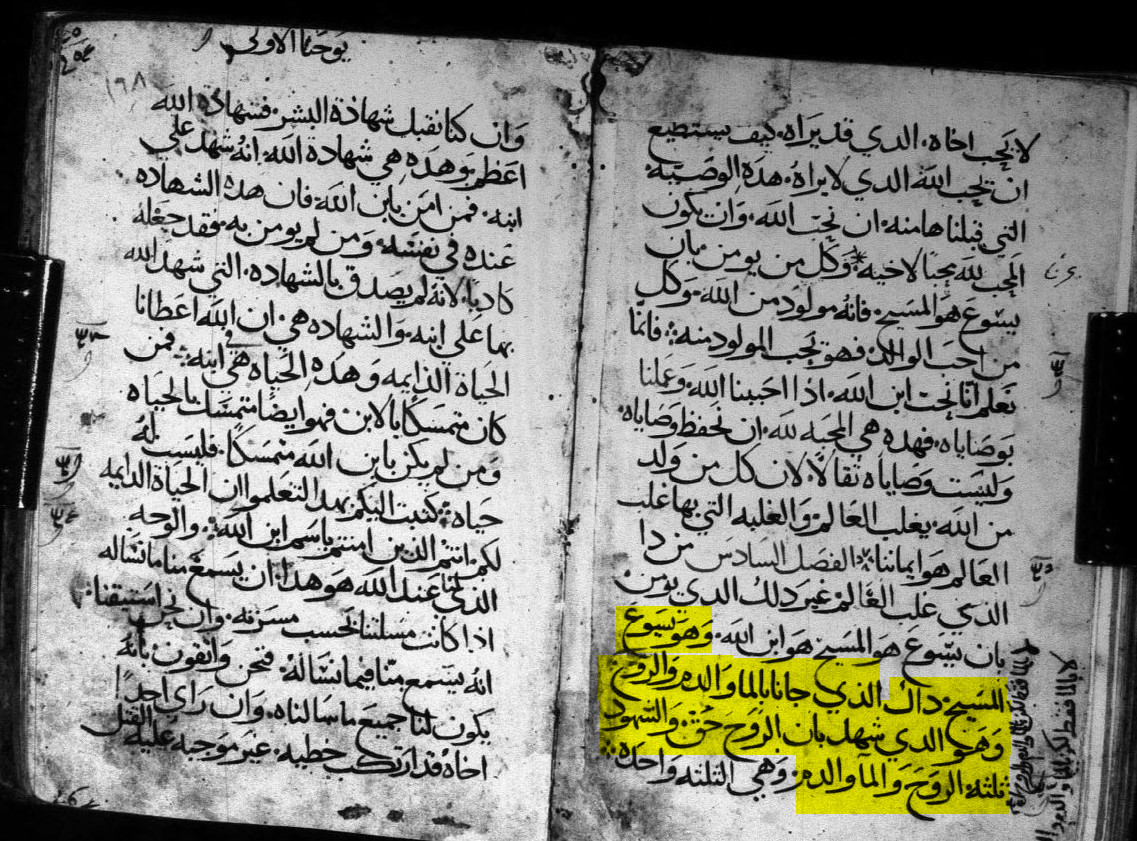 لا يحب اخاه. الدي قد يراه. كيف يستطيع
ان يحب الله الدي لا يراه. هده الوصيه.
التي قبلناها منه. ان نحب الله. وان يكون
المحب لله محبًا لاخيه. وكل من يومن بان
يسوع هو المسيح. فانه مولود من الله. وكل
من احب الوالد. فهو يحب المولود منه. فانما
نعلم اننا نحب ابن الله. اذا احببنا الله. وعملنا
بوصاياه. فهده هي المحبه لله. ان نحفظ وصاياه.
وليست وصاياه ثقالًا. لان كل من ولد
من الله. يغلب العالم. والغلبه التي بها غلب
العالم هو ايماننا. الفصل السادس من دا
الدي غلب العالم. غير دلك الدي يومن.
بان يسوع هو المسيح هو ابن الله. وهو يسوع
المسيح. داك الذي جانا بالما والدم والروح
وهو الدي شهد بان الروح حق. والشهود
ثلثه. الروح والما والدم. وهي الثلثه واحده.
يوحنا الاولى
١٩٨
وان كنا نقبل شهادة البشر. فشهادة الله
اعظم. وهده هي شهادة الله. انه شهد على
ابنه. فمن امن بابن الله. فان هده الشهاده
عنده في نفسه. ومن لم يومن به. فقد جعله
كادبًا. لانه لم يصدق بالشهاده. التي شهد الله
بها على ابنه. والشهاده هي. ان الله اعطانا
الحياة الدايمه وهده الحياه هي في ابنه. فمن
كان متمسكًا بالابن. فهو ايضًا متمسك بالحياه
ومن لم يكن بابن الله متمسكًا. فليست له
حياه. كتبت اليكم بهدا لتعلموا ان الحياة الدايمه
لكم. انتم الدين امنتم باسم ابن الله. والوجه
الدي لنا عند الله هو هدا. ان يسمع منا ما نساله
اذا كانت مسلتنا بحسب مسرته. وان نحن استيقنا.
انه يسمع منا فيما نساله. فنحن واثقون بانه
يكون لنا جميع ما سالناه. وان راى احدًا
اخاه قد ارتكب خطيه. غير موجبه عليه القتل